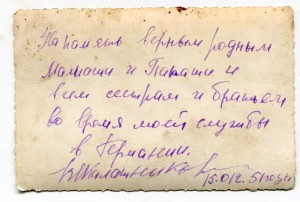 На память верным родным
Мамаши и Папаши и
всем сестрам и братьем
во время моей службы
в Германии.
15.012.51 года